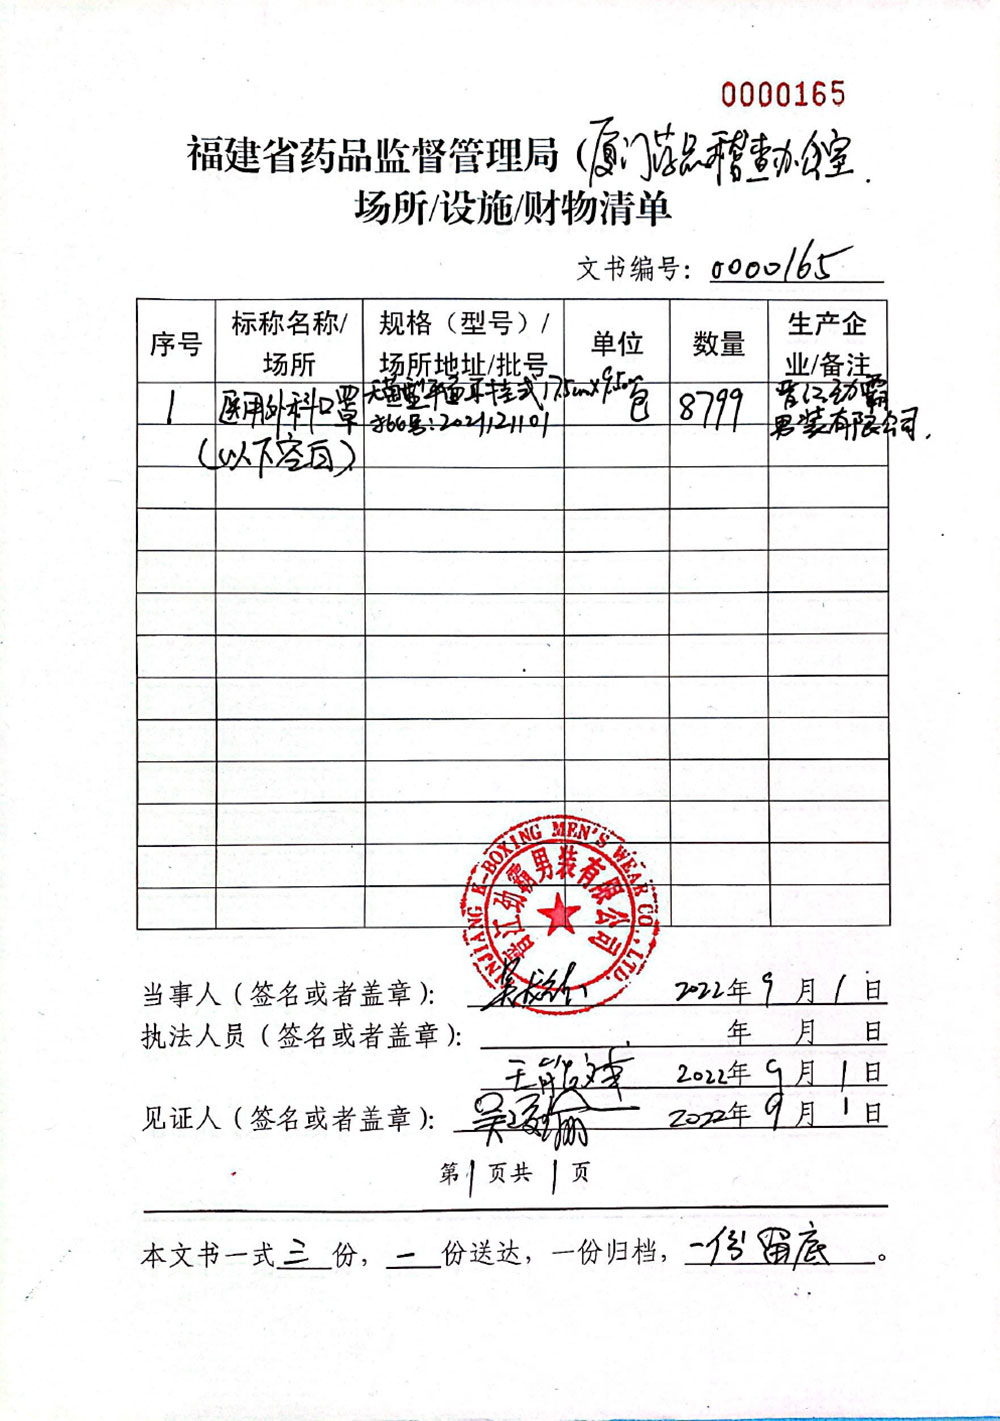 0000165
福建省药品监督管理局(厦门药品稽查办公室
场所/设施/财物清单
文书编号: 0000165
序号 标称名称/场所 规格(型号)/场所地址/批号 单位 数量 生产企业/备注
1 医用外科口罩 无菌型平面耳挂式17.5cm×9.5cm 包 8799 晋江劲霸
批号:2021121101 男装有限公司.
(以下空白)
JINJIANG K-BOXING MEN'S WEAR CO.,LTD.
晋江劲霸男装有限公司
当事人(签名或者盖章): 2022年9月1日
执法人员(签名或者盖章): 年 月 日
2022年9月1日
见证人(签名或者盖章): 2022年9月1日
第1页共1页
本文书一式三份,一份送达,一份归档,一份留底。